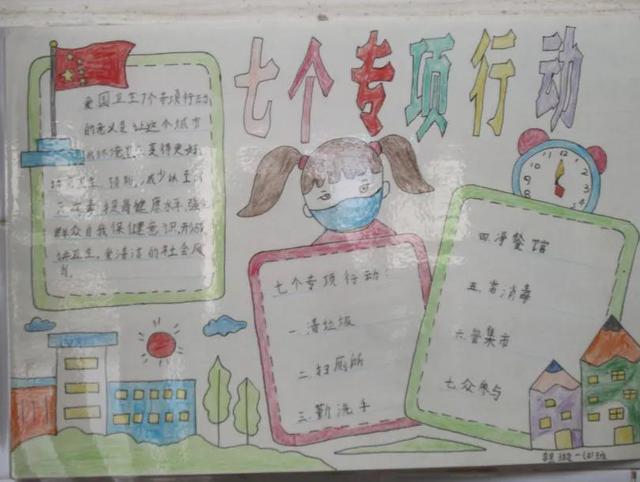 七个专项行动
爱国卫生7个专项行动
的意义是让这个城市
环境卫生变得更好,
讲卫生、预防,减少以至
提高健康水平,强
群众自我保健意识,形成
讲卫生,爱清洁的社会风
七个专项行动
一.清垃圾
二.扫厕所
三.勤洗手
四.净餐馆
五.常消毒
六.管集市
七.众参与
12